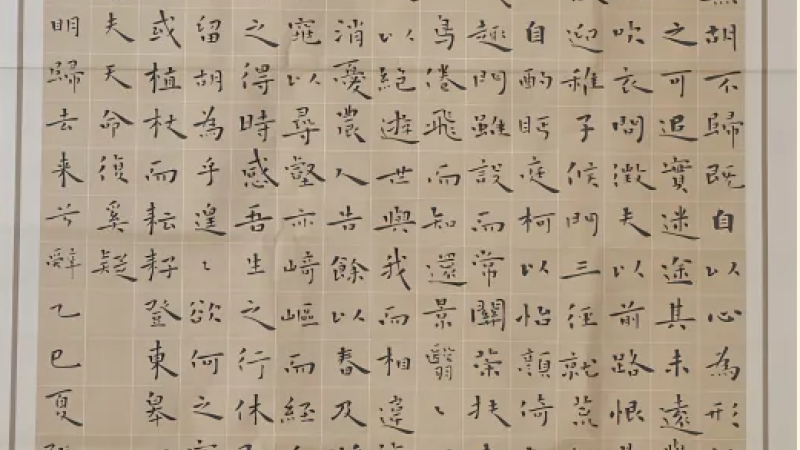 胡不歸既自以心為形
之可追實迷途其未遠
吹衣問徵夫以前路恨
迎稚子候門三徑就荒
自酌眄庭柯以怡顏倚
趣門雖設而常關策扶
鳥倦飛而知還景翳〻
以絕遊世與我而相違
消憂農人告餘以春及
窕以尋壑亦崎嶇而經
之得時感吾生之行休
留胡為乎遑〻欲何之
或植杖而耘耔登東皋
夫天命復奚疑
明歸去来兮辭乙巳夏